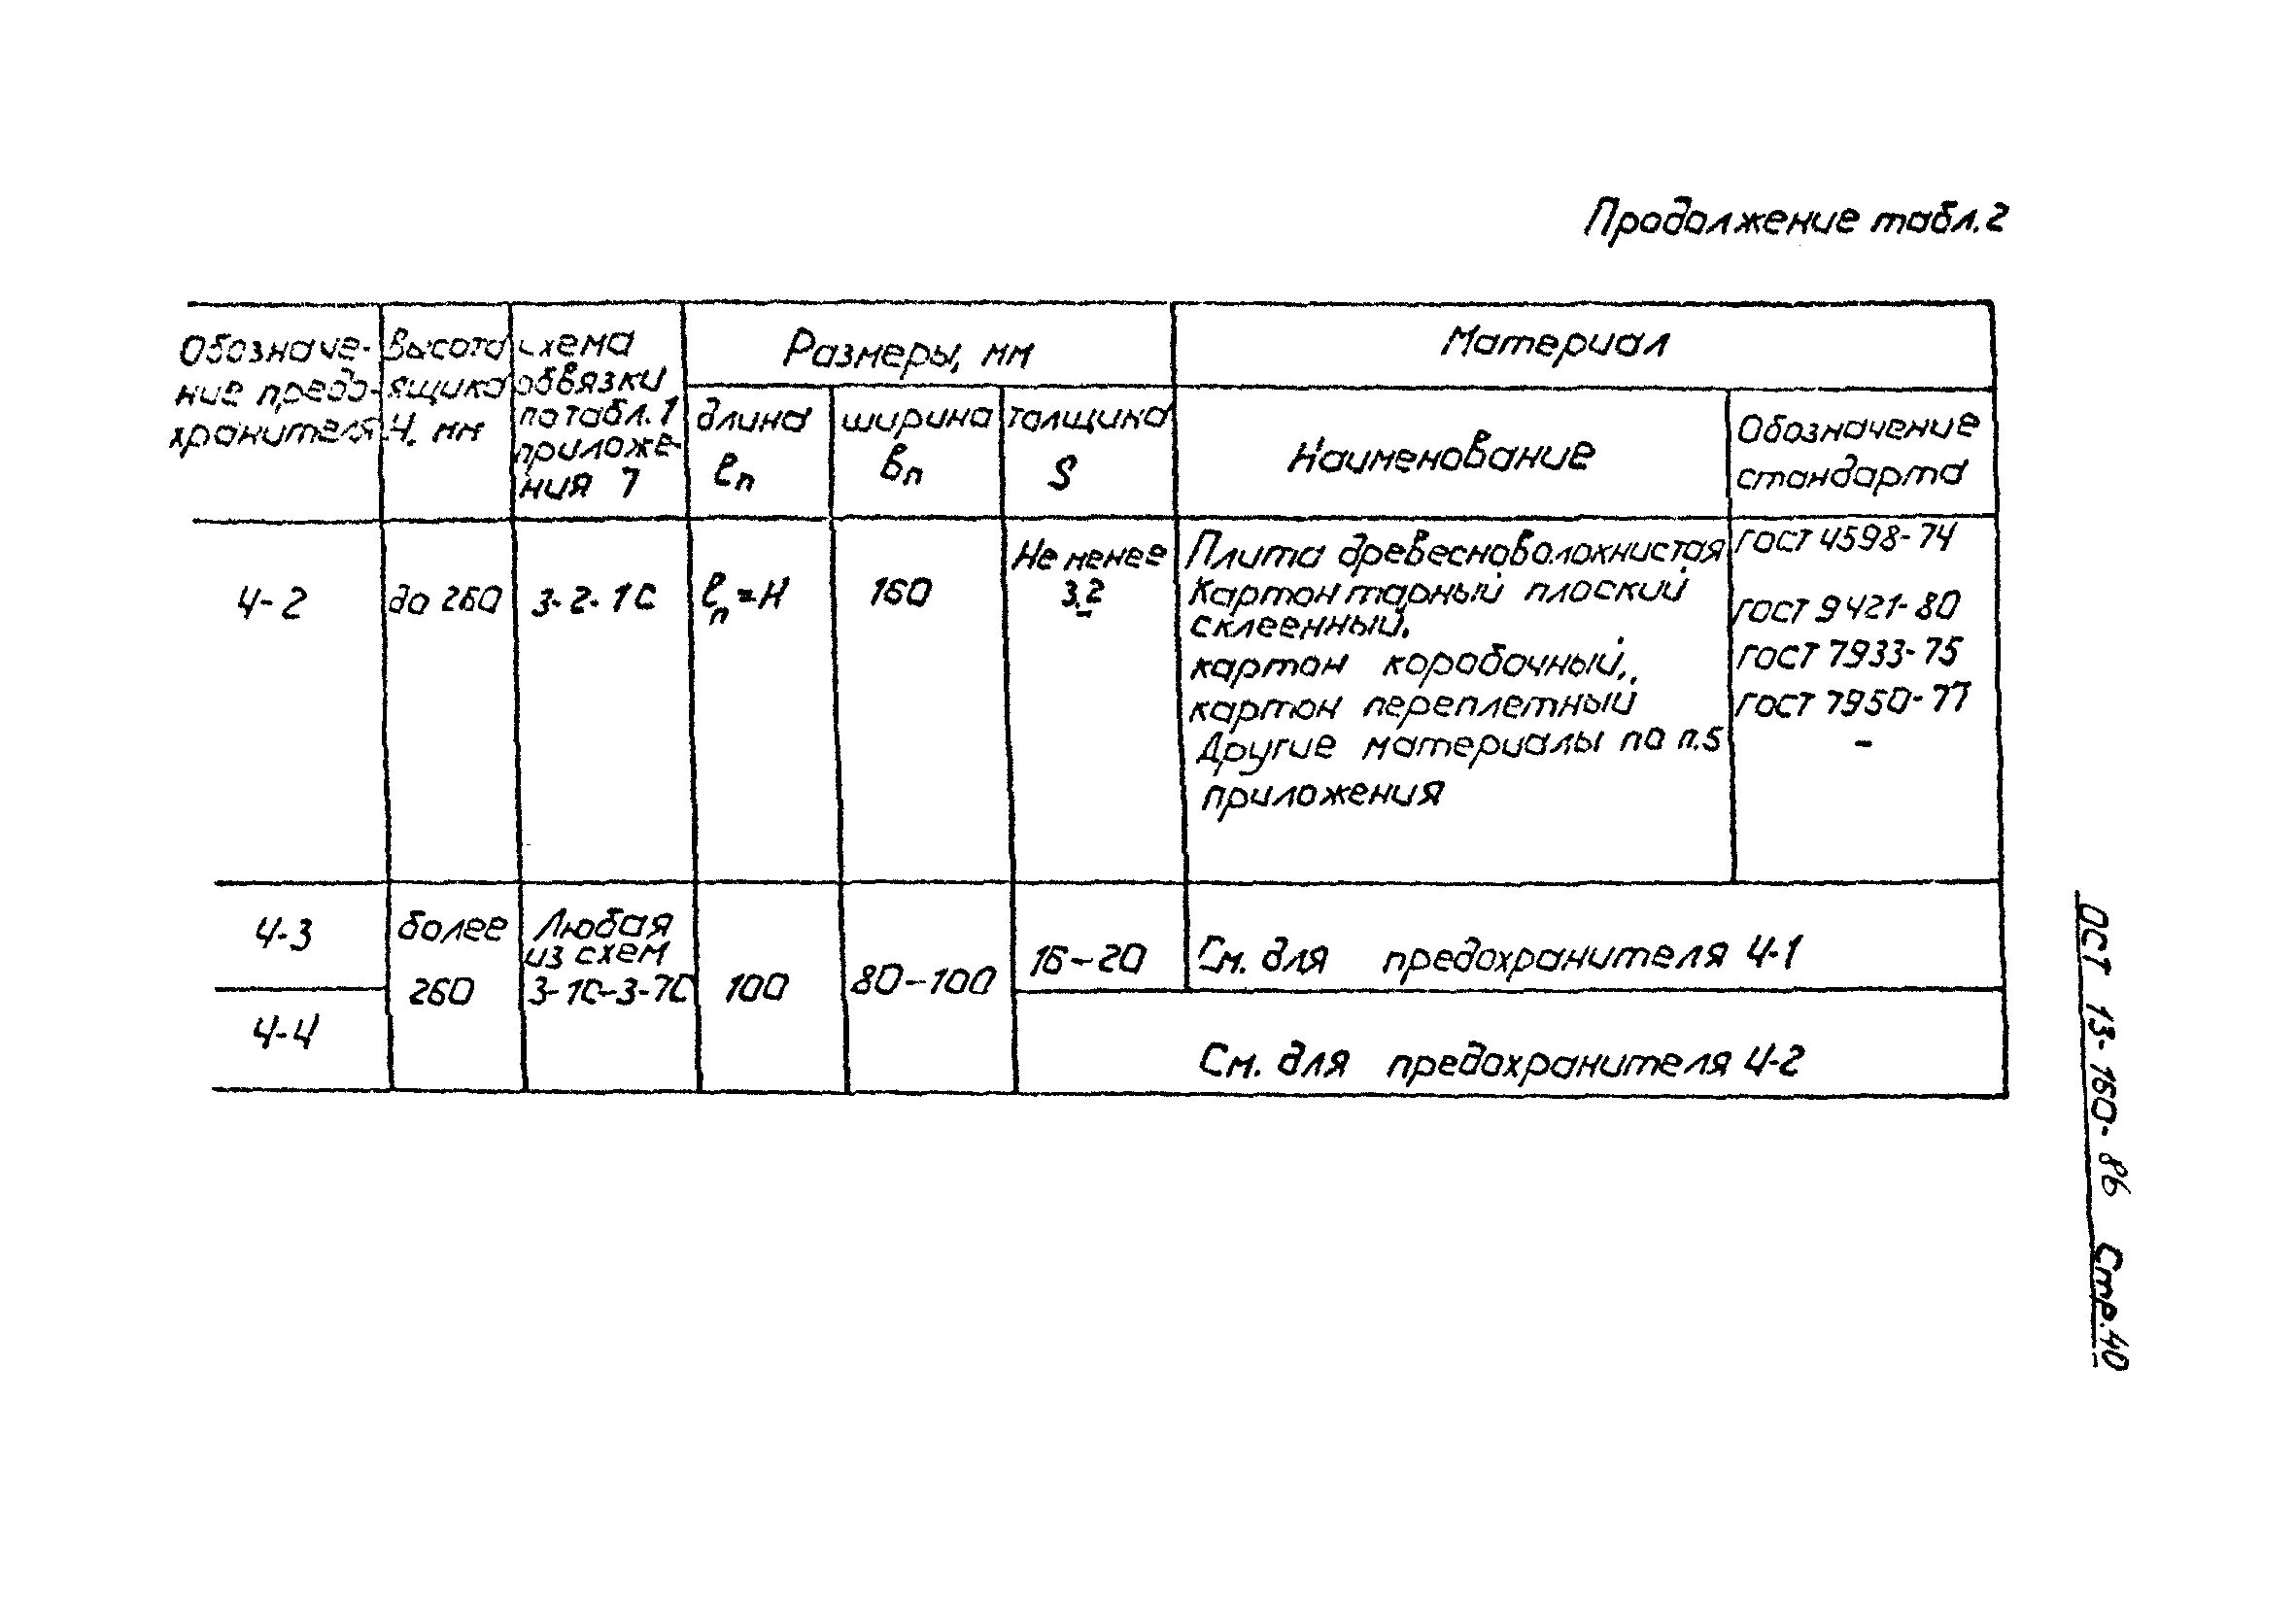 Продолжение табл.2
Обозначе-
ние предо-
хранителя
Высота
ящика
Н, мм
схема
обвязки
по табл.1
приложе-
ния 7
Размеры, мм
длина
ℓп
ширина
вп
толщина
S
Материал
Наименование
Обозначение
стандарта
4-2
до 260
3-2-1С
ℓп=Н
160
Не менее
3,2
Плита древесноволокнистая
Картон тарный плоский
склеенный.
картон коробочный,
картон переплетный
Другие материалы по п.5
приложения
ГОСТ 4598-74
ГОСТ 9421-80
ГОСТ 7933-75
ГОСТ 7950-77
-
4-3
более
260
Любая
из схем
3-1С-3-7С
100
80-100
16-20
См. для предохранителя 4-1
4-4
См. для предохранителя 4-2
ОСТ 13-160-86 Стр.40